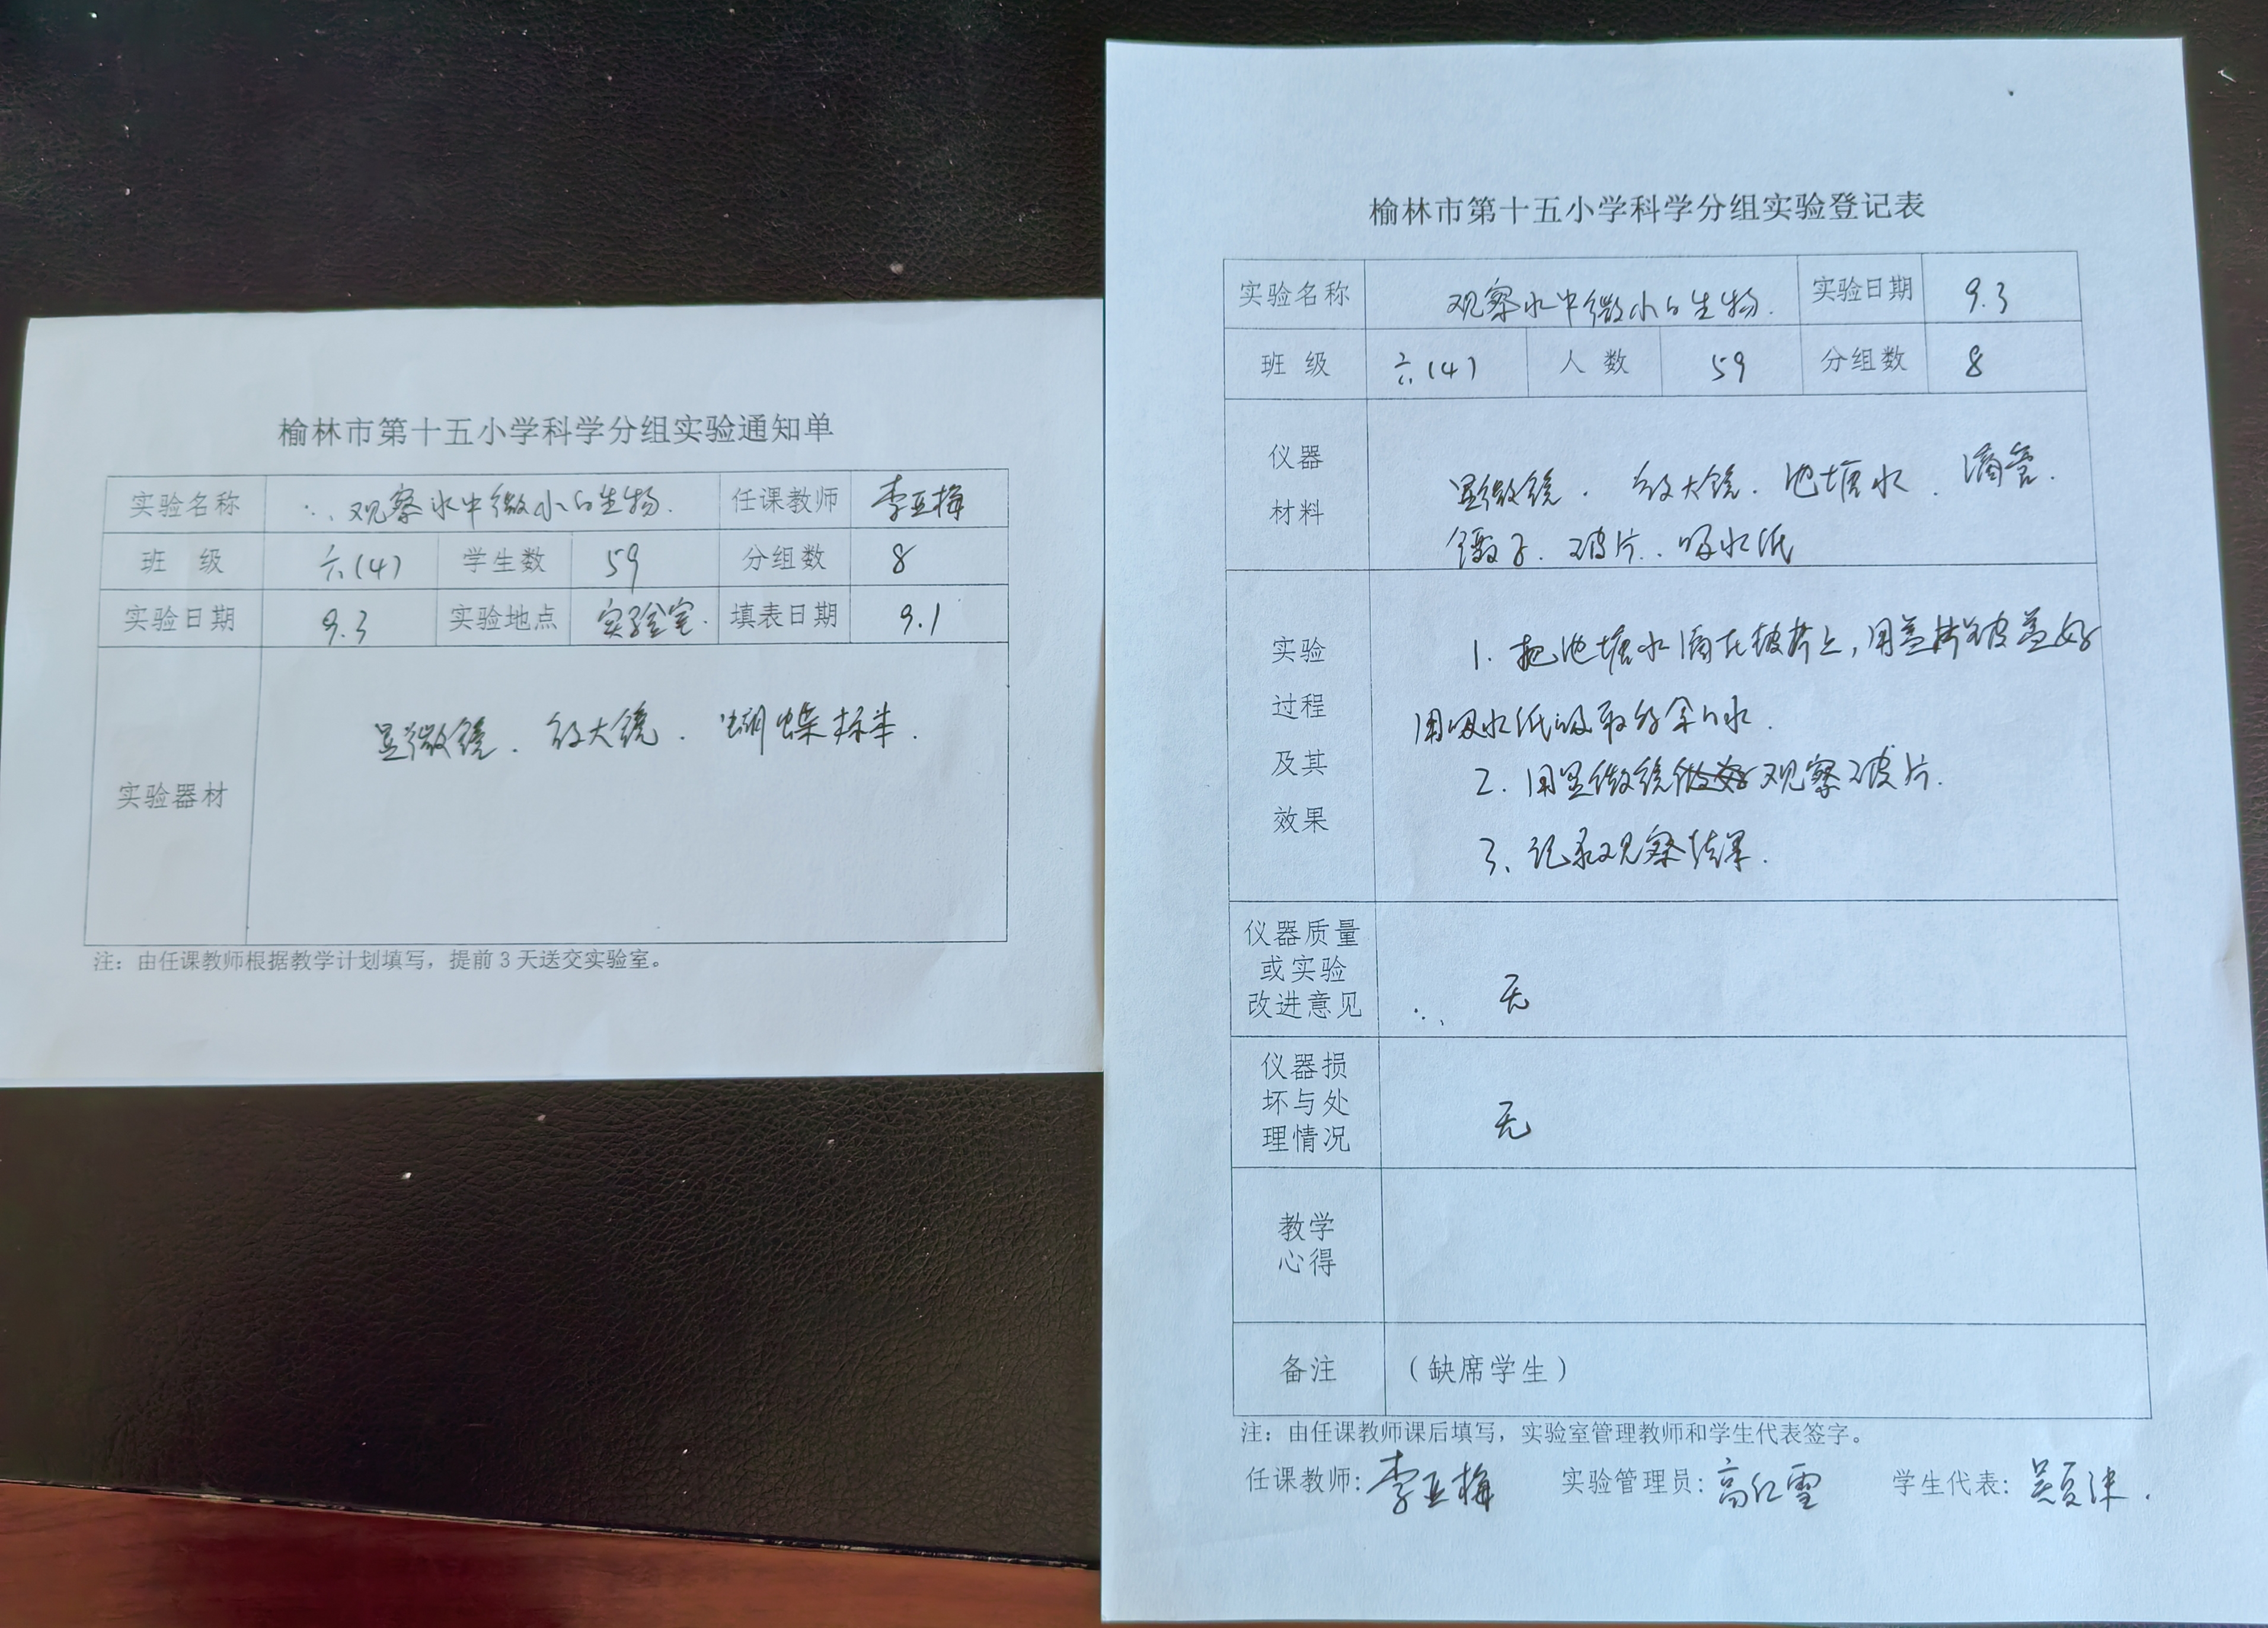 榆林市第十五小学科学分组实验通知单
实验名称 观察水中微小的生物. 任课教师 李亚梅
班 级 六(4) 学生数 59 分组数 8
实验日期 9.3 实验地点 实验室. 填表日期 9.1
实验器材 显微镜. 放大镜. 蝴蝶标本.
注：由任课教师根据教学计划填写，提前3天送交实验室。
榆林市第十五小学科学分组实验登记表
实验名称 观察水中微小的生物. 实验日期 9.3
班 级 六(4) 人 数 59 分组数 8
仪器
材料
显微镜. 放大镜. 池塘水. 滴管.
镊子. 玻片. 吸水纸
实验
过程
及其
效果
1. 把池塘水滴在玻片上，用盖玻盖好
用吸水纸吸取多余的水.
2. 用显微镜观察玻片.
3. 记录观察结果.
仪器质量
或实验
改进意见
无
仪器损
坏与处
理情况
无
教学
心得
备注 （缺席学生）
注：由任课教师课后填写，实验室管理教师和学生代表签字。
任课教师：李亚梅 实验管理员：高红雪 学生代表：吴夏沫.